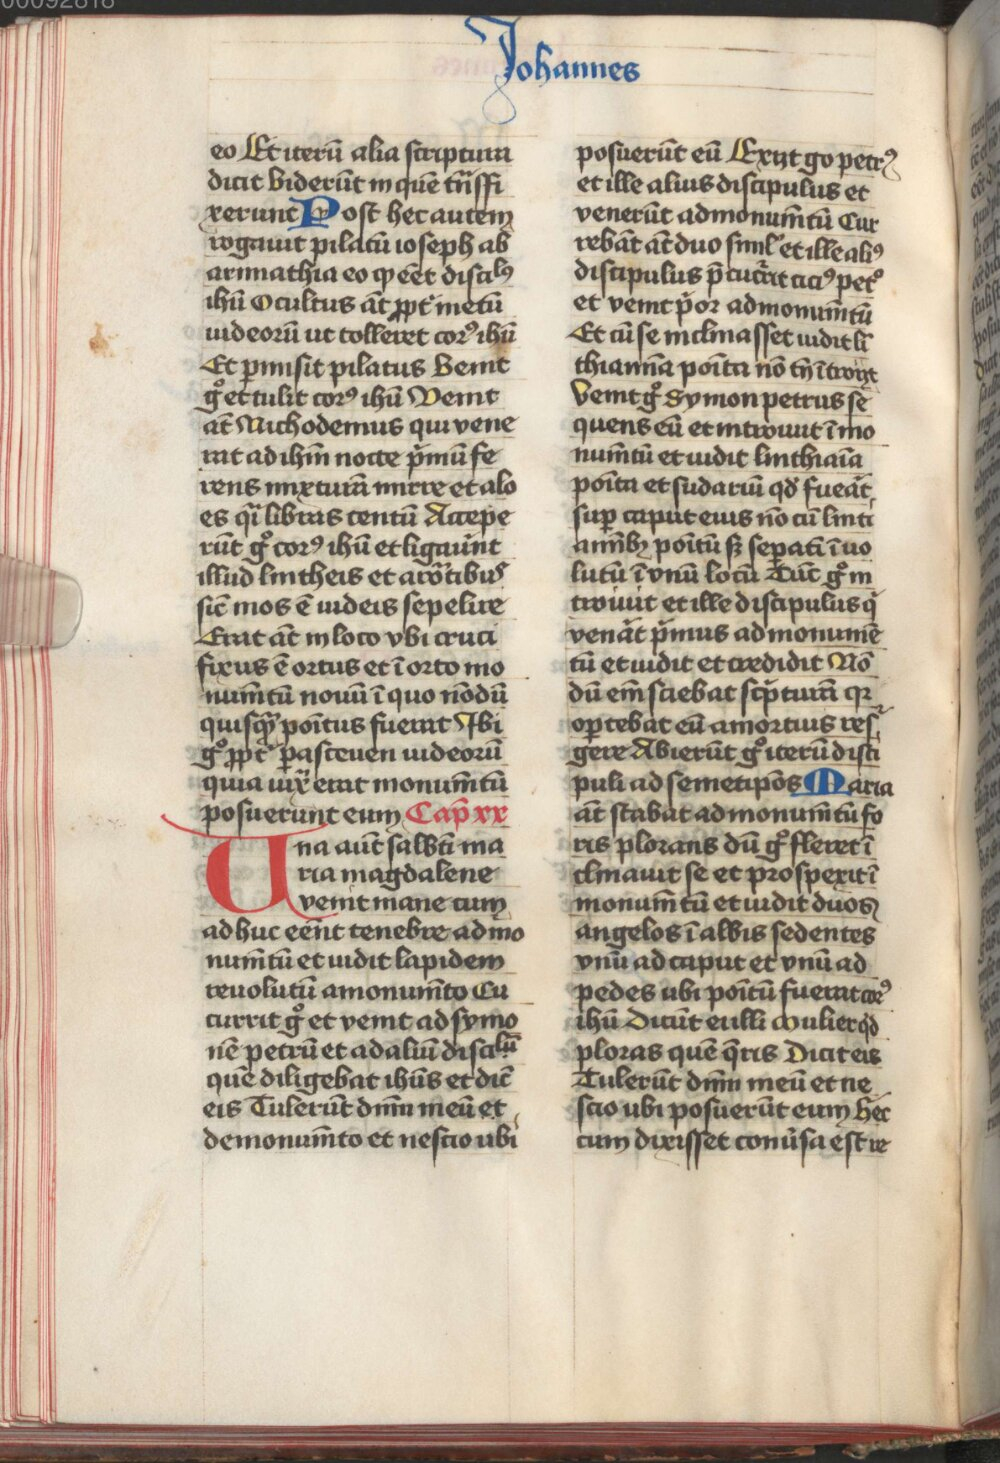 00092818
Johannes
eo Et iterū alia scriptura
dicit Viderūt in quē trāsfi
xerunt Post hec autem
rogauit pilatū ioseph ab
arimathia eo qꝫ eēt discilꝰ
ihū Ocultus āt ꝓpt̄ metū
iudeorū ut tolleret corꝰ ihū
Et ꝑmisit pilatus Venit
gͦ et tulit corꝰ ihū Venit
āt Nichodemus qui vene
rat ad ihm̄ nocte pͥmū fe
rens mixturā mirre et alo
es qͣi libras centū Accepe
rūt gͦ corꝰ ihū et ligauert
illud lintheis et arōtibus
sic̄ mos ē iudeis sepelire
Erat āt in loco vbi cruci
fixus ē ortus et ī orto mo
num̄tū nouū ī quo nōdū
quisqͣꝫ poītus fuerat Ibi
gͦ ꝓpt̄ ꝑasceuen iudeorū
quia iuxͣ erat monum̄tū
posuerunt eum Cap̄ xx
Una aut̄ sabb̄ti ma
ria magdalene
venit mane cum
ad huc eēnt tenebre ad mo
num̄tū et vidit lapidem
reuolutū a monum̄to Cu
currit gͦ et venit ad symo
nē petrū et ad aliū discilū
quē diligebat ihūs et dic̄
eis Tulerūt dnm̄ meū et
de monum̄to et nescio ubi
posuerūt eū Exijt go petrꝰ
et ille alius discipulus et
venerūt ad monum̄tū Cur
rebāt āt duo siml̄ et ille aliꝰ
discipulus p̄cucͣrit citiꝰ petͦ
et venit pͥor ad monum̄tū
Et cū se inclinasset vidit lī
thiamīa poīta nō tn̄ ītroijt
Venit gͦ Symon petrus se
quens eū et introiuit ī mo
num̄tū et vidit linthiaīa
poīta et sudariū qd̓ fuēat
suꝑ caput eius nō cū linti
aminibꝫ poītū sꝫ sepatī ī uo
lutū ī vnū locū Tūc gͦ in
troiuit et ille discipulus qͥ
venāt pͥmus ad monumē
tū et vidit et credidit Nō
dū em̄ sciebat scͥpturā qꝛ
oꝑtebat eū a mortuis resͬ
gere Abierūt gͦ iterū disci
puli ad semetipōs Maria
āt stabat ad monum̄tū fo
ris plorans dū gͦ fleret ī
clinauit se et prospexit ī
monum̄tū et vidit duos
angelos ī albis sedentes
vnū ad caput et vnū ad
pedes ubi poītū fuerat corꝰ
ihū Dicūt ei illi Mulier qd̓
ploras quē q̄ris Dicit eis
Tulerūt dnm̄ meū et ne
scio ubi posuerūt eum Hec
cum dixisset conūsa est re